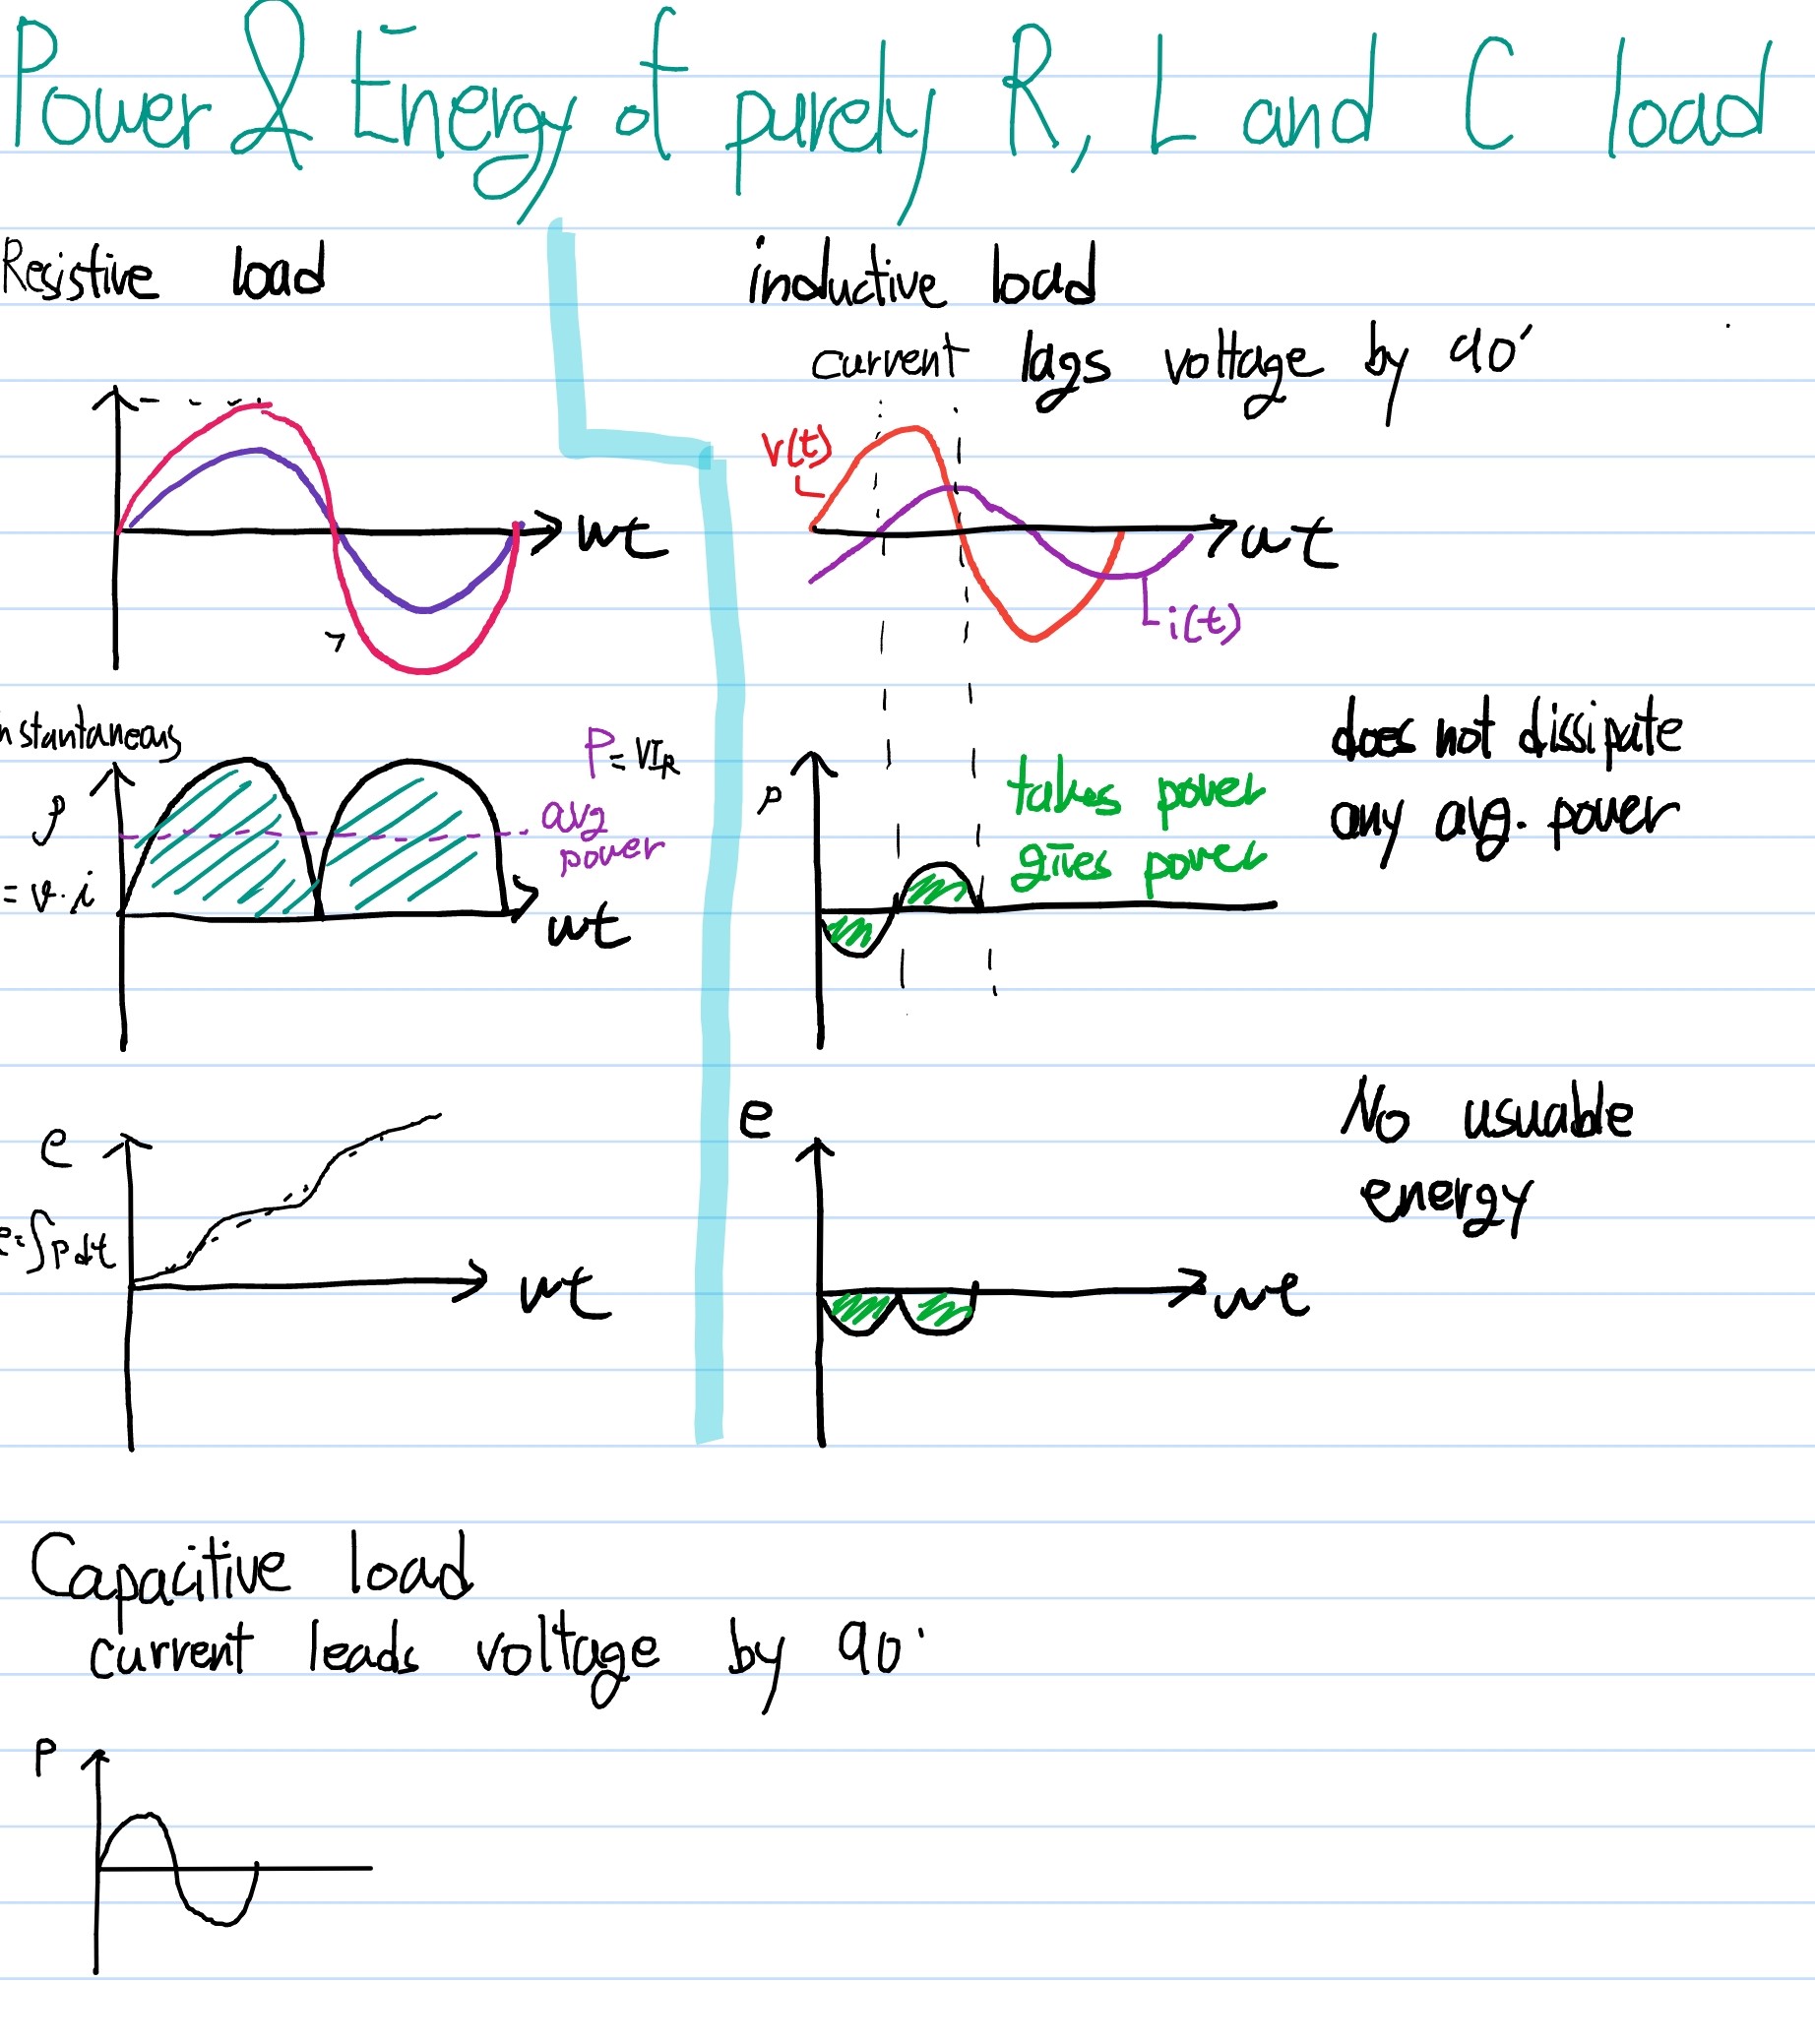 Power & Energy of purely R, L and C load
Resistive load
wt
nstantaneous
P = VI_R
p
= v·i
avg
power
wt
e
e=∫pdt
wt
inductive load
current lags voltage by 90°
v(t)
wt
i(t)
p
takes power
gives power
does not dissipate
any avg. power
e
wt
No usuable
energy
Capacitive load
current leads voltage by 90°
P